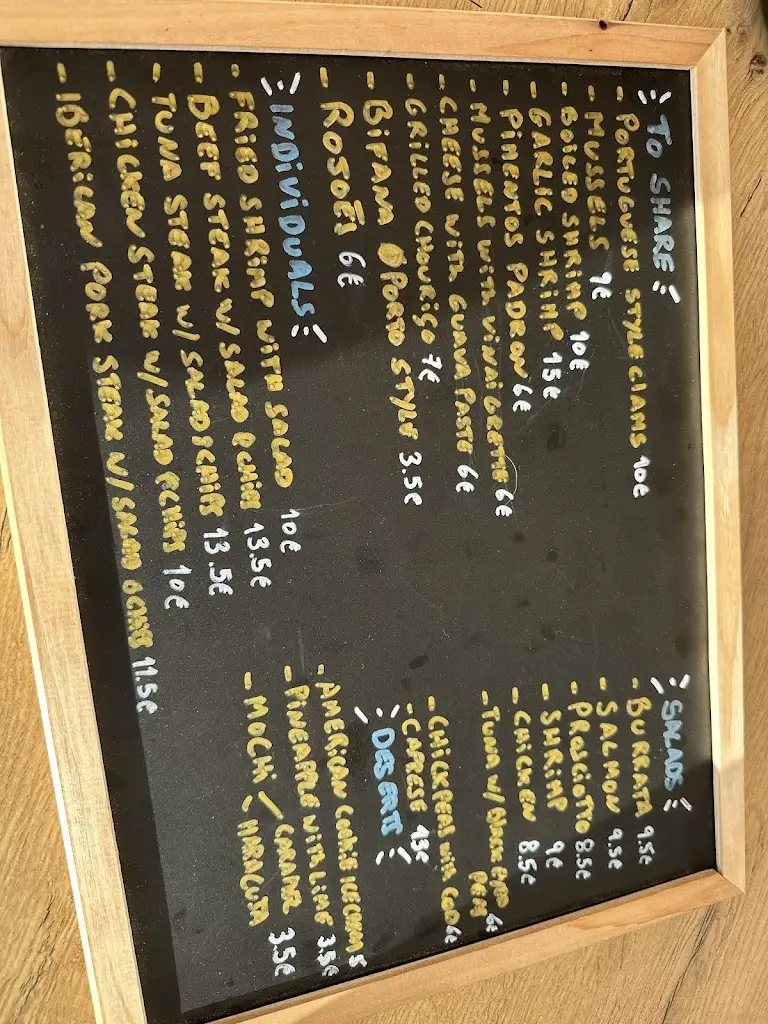 TO SHARE
- PORTUGUESE STYLE CLAMS 10€
- MUSSELS 9€
- BOILED SHRIMP 10€
- GARLIC SHRIMP 15€
- PIMENTOS PADRON 6€
- MUSSELS WITH VINAIGRETTE 6€
- CHEESE WITH GUAVA PASTE 6€
- GRILLED CHOURIÇO 7€
- BIFANA PORTO STYLE 3.5€
- ROJOẼS 6€
INDIVIDUALS
- FRIED SHRIMP WITH SALAD 10€
- BEEF STEAK W/ SALAD & CHIPS 13.5€
- TUNA STEAK W/ SALAD & CHIPS 13.5€
- CHICKEN STEAK W/ SALAD & CHIPS 10€
- IBERICAN PORK STEAK W/ SALAD & CHIPS 11.5€
SALADS
- BURRATA 9.5€
- SALMON 9.5€
- PROSCIOTTO 8.5€
- SHRIMP 9€
- CHICKEN 8.5€
- TUNA W/ BLACK EYED PEA 6€
- CHICKPEAS WITH COD 6€
- CAPESE
DESERTS
- AMERICAN COOKIE ICE CREAM 5
- PINEAPPLE WITH LIME 3.5€
- MOCHI CARAMEL
MARACUJA 3.5€